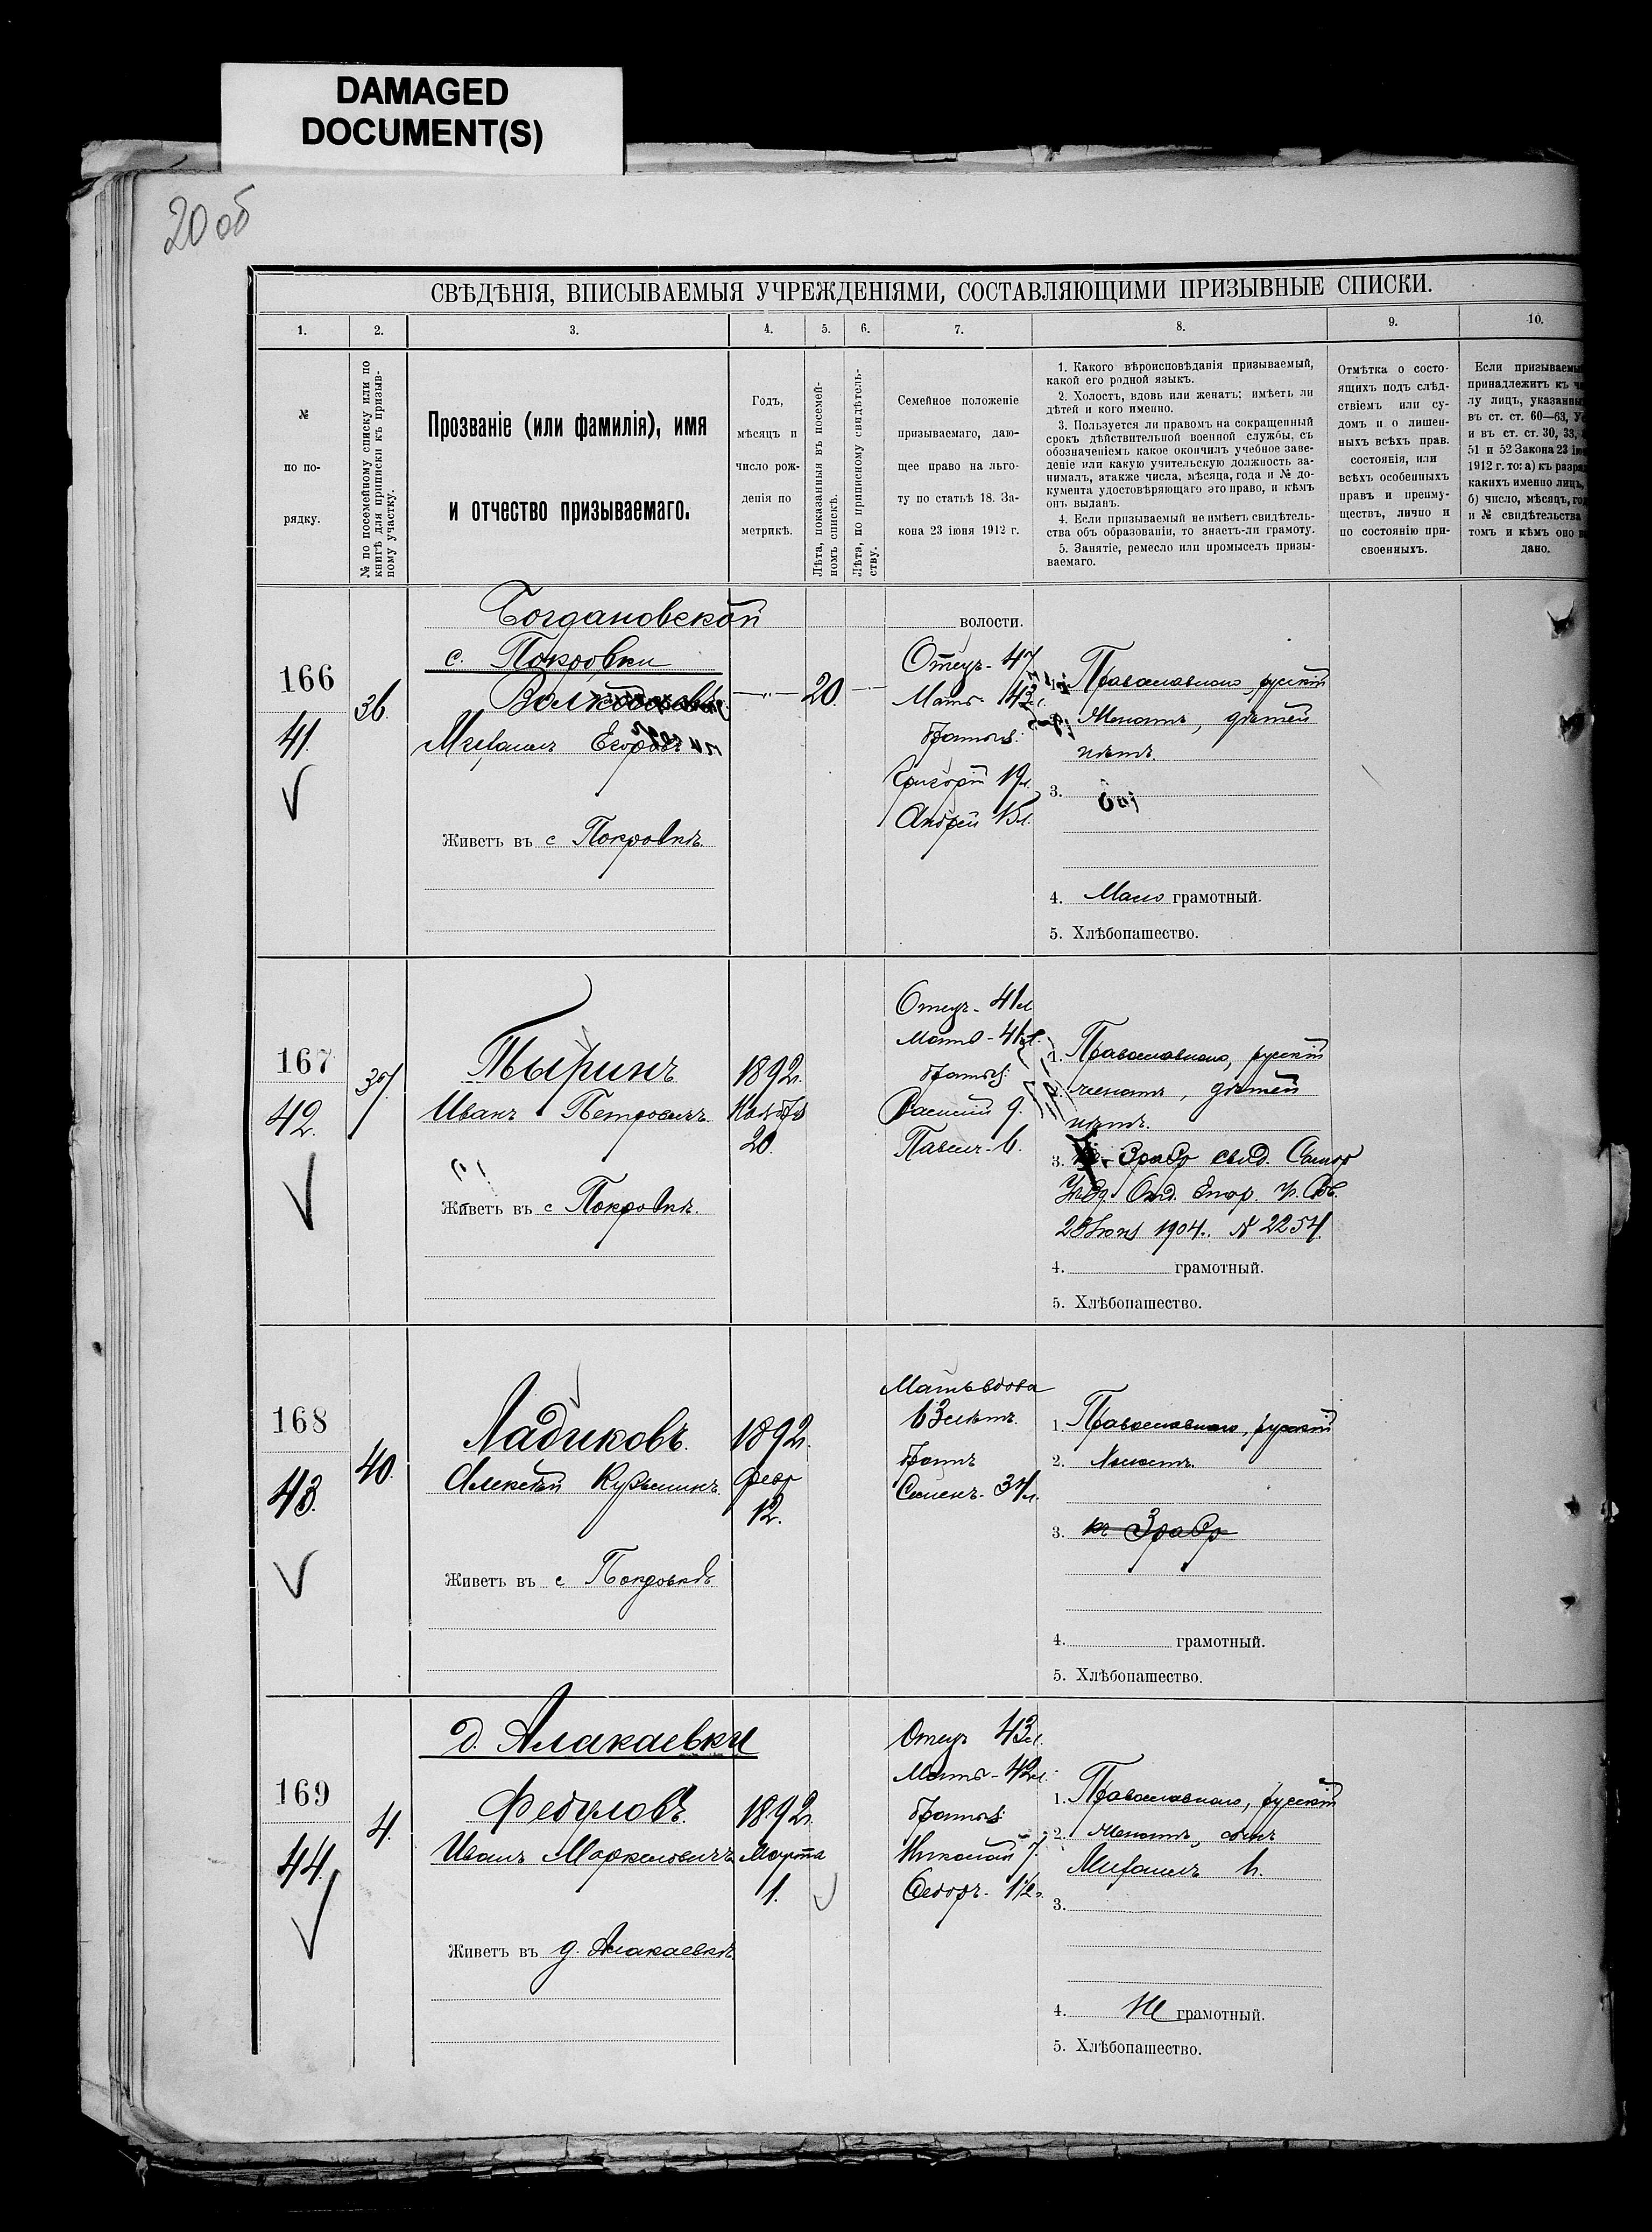 DAMAGED
DOCUMENT(S)
20 об
СВѢДѢНІЯ, ВПИСЫВАЕМЫЯ УЧРЕЖДЕНІЯМИ, СОСТАВЛЯЮЩИМИ ПРИЗЫВНЫЕ СПИСКИ.
1. 2. 3. 4. 5. 6. 7. 8. 9. 10.
№
по по-
рядку.
№ по посемейному списку или по
книгѣ для приписки къ призыв-
ному участку.
Прозваніе (или фамилія), имя
и отчество призываемаго.
Годъ,
мѣсяцъ и
число рож-
денія по
метрикѣ.
Лѣта, показанныя въ посемей-
номъ спискѣ.
Лѣта, по приписному свидѣтель-
ству.
Семейное положеніе
призываемаго, даю-
щее право на льго-
ту по статьѣ 18. За-
кона 23 іюня 1912 г.
1. Какого вѣроисповѣданія призываемый,
какой его родной языкъ.
2. Холостъ, вдовъ или женатъ; имѣетъ ли
дѣтей и кого именно.
3. Пользуется ли правомъ на сокращенный
срокъ дѣйствительной военной службы, съ
обозначеніемъ какое окончилъ учебное заве-
деніе или какую учительскую должность за-
нималъ, атакже числа, мѣсяца, года и № до-
кумента удостовѣряющаго это право, и кѣмъ
онъ выданъ.
4. Если призываемый не имѣетъ свидѣтель-
ства объ образованіи, то знаетъ-ли грамоту.
5. Занятіе, ремесло или промыселъ призы-
ваемаго.
Отмѣтка о состо-
ящихъ подъ слѣд-
ствіемъ или су-
домъ и о лишен-
ныхъ всѣхъ прав.
состоянія, или
всѣхъ особенныхъ
правъ и преиму-
ществъ, лично и
по состоянію при-
своенныхъ.
Если призываемы
принадлежитъ къ
лу лицъ, указанны
въ ст. ст. 60—63,
и въ ст. ст. 30, 33,
51 и 52 Закона 23
1912 г. то: а) къ
какихъ именно лицъ,
б) число, мѣсяцъ,
и № свидѣтельства
томъ и кѣмъ оно
дано.
Богдановской волости.
с. Покровки
166
41.
36.
Михаилъ Егоровъ
20.
Живетъ въ с Покровкѣ.
Отецъ - 47
Мать - 43 л.
братья:
Григорій 19 л.
Андрей 15 л.
Православнаго, русскій
Женатъ, дѣтей
нѣтъ.
3.
4. Мало грамотный.
5. Хлѣбопашество.
167
42.
37.
Пыринъ
Иванъ Петровичъ.
1892 г.
20.
Живетъ въ с Покровкѣ.
Отецъ - 41 л
Мать - 41 л.
братья:
Василій 9.
Павелъ - 6.
1. Православнаго, русскій
2. женатъ, дѣтей
нѣтъ.
3. 3 разр свид. Самар
1904 г. № 2254.
4. грамотный.
5. Хлѣбопашество.
168
43.
40.
Ладиковъ.
Алексѣй Кузьминъ.
1892 г.
Февр
12.
Живетъ въ с Покровкѣ
Мать вдова
63 лѣтъ.
братъ
Семенъ - 34 л.
1. Православнаго, русскій
2. Холостъ.
3. къ 3 разр
4. грамотный.
5. Хлѣбопашество.
д. Алакаевки
169
44.
4.
Федуловъ.
Иванъ Маркеловичъ
1892 г.
Марта
1.
Живетъ въ д. Алакаевкѣ.
Отецъ 43 л.
Мать - 42 л.
братья:
Николай 7.
Федоръ - 1½ г.
1. Православнаго, русскій
2. Женатъ, сынъ
Михаилъ
3.
4. Не грамотный.
5. Хлѣбопашество.